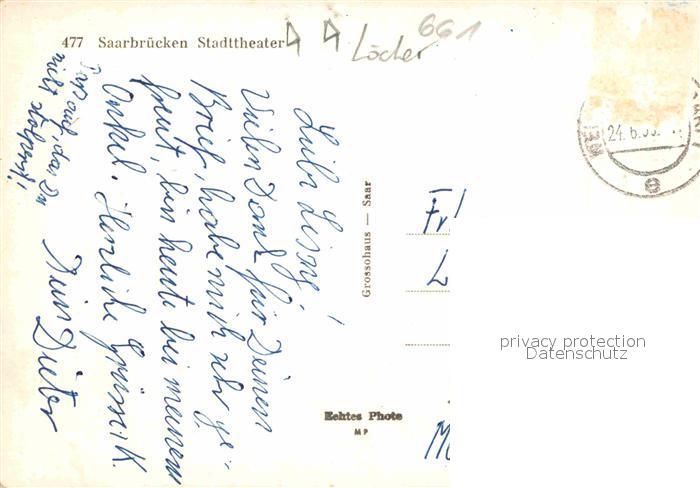 477 Saarbrücken Stadttheater
Löcher
661
Liebe Lissy!
Vielen Dank für Deinen
Brief, habe mich sehr ge-
freut, bin heute bei meinem
Onkel. Herzliche Grüsse u. K.
Dein Dieter
Pass auf, das Du
nicht stolperst!
Grossohaus — Saar
Echtes Photo
MP
Frl
L
M
24.6.
e
privacy protection
Datenschutz